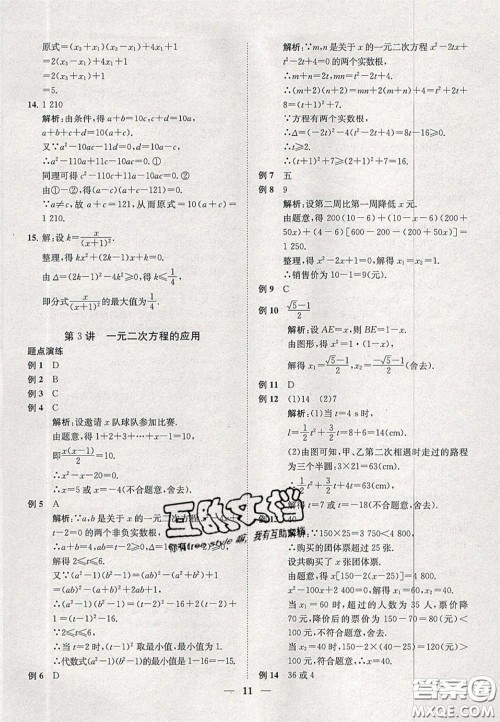 原式=(x₃+x₁)(x₃-x₁)+4x₁+1
=2(x₃-x₁)+4x₁+1
=2(x₃+x₁)+1
=5.
14. 1 210
解析:由条件,得 a+b=10c,c+d=10a,
a+b+c+d=10(a+c).
又∵a²-10ac-11d=0,
∴a²-110a-10ac+11c=0.
同理可得 c²-110c-10ac+11a=0.
由①-②,得(a-c)(a+c-121)=0.
∵a≠c,故 a+b+c+d=10(a+c)=
1 210.
15. 解:设 k=x/(x+1)².
整理,得 kx²+(2k-1)x+k=0.
由 Δ=(2k-1)²-4k²≥0,得 k≤1/4,
即分式 x/(x+1)² 的最大值为 1/4.
第 3 讲 一元二次方程的应用
题点演练
例 1 D
例 2 B
例 3 C
例 4 C
解析:设邀请 x 队球队参加比赛.
由题意,得 1+2+3+…+x-1=10,
即 x(x-1)/2=10.
∴x²-x-20=0.
∴x=5 或 x=-4(不合题意,舍去).
例 5 A
解析:∵a,b 是关于 x 的一元二次方程
的两个非负实数根,
∴可得 a+b=2,ab=t-1≥0.
∴t≥1.
又∵Δ=4-4(t-1)≥0,可得 t≤2,
∴2≤t≤2.
又∵(a²-1)(b²-1)=(ab)²-(a²+
b²)+1=(ab)²-(a+b)²+2ab+1,
∴(a²-1)(b²-1)=(t-1)²+2(t-
1)
∴当 t=1 时,取最小值,最小值为 1.
∴代数式(a²-1)(b²-1)的最小值 1-16=-15.
例 6 D
解析:∵m,n 是关于 x 的一元二次方程 x²-2tx+
t²-2t+4=0 的两个实数根,
∴m+n=2t,mn=t²-2t+4.
∴(m+2)(n+2)=mn+2(m+n)+4=
t²+2t+8=(t+1)²+7.
∵方程有两个实数根,
∴Δ=(-2t)²-4(t²-2t+4)=8t-16≥0.
∴t≥2.
∴(t+1)²+7≥(2+1)²+7=16.
例 7 五
例 8 9
解析:设第二周比第一周降低 x 元.
由题意,得 200(10-6)+(10-x-6)(200+
50x)+(4-6)[600-200-(200+50x)]=
1 250.
整理,得 x²-2x+1=0.
解得 x₁=x₂=1.
∴销售价为 10-1=9(元).
例 9 C
例 10 (√5-1)/2
解析:设 AE=x,则 BE=1-x.
由图形,得 1×(1-x)=x².
解得 x₁=(√5-1)/2,x₂=(-√5-1)/2(不合题意,
舍去).
例 11 D
例 12 (1)14 (2)7
解析:(1)当 t=4 s 时,
l=1/2t²+3/2t=8+6=14(cm).
(2)由图可知,甲、乙第二次相遇时走过的路
程为三个半圆:3×21=63(cm),
∴1/2t²+3/2t+4t=63.
解得 t₁=7,t₂=-18(不合题意,舍去).
40
∵150×25=3 750(元)<
∴购买的团体票超过 25 张.
设共购买了 x 张团体票.
由题意,得 x[150-2(x-25)]=4 800.
x²-100x+2 400=0.
解得 x₁=60,x₂=40.
当 x₁=60 时,超过的人数为 35 人,票价降
70 元,降价后为 150-70=80(元)<100
元,不合题意,舍去;
当 x₂=40 时,超过的人数为 15,票价降 30
元,降价后为 150-30=120(元)>100 元,
符合题意.
例 14 36 或 4
11
互助文档
你有free style 嘛,我有互助文档
答案圈
MXQE.COM